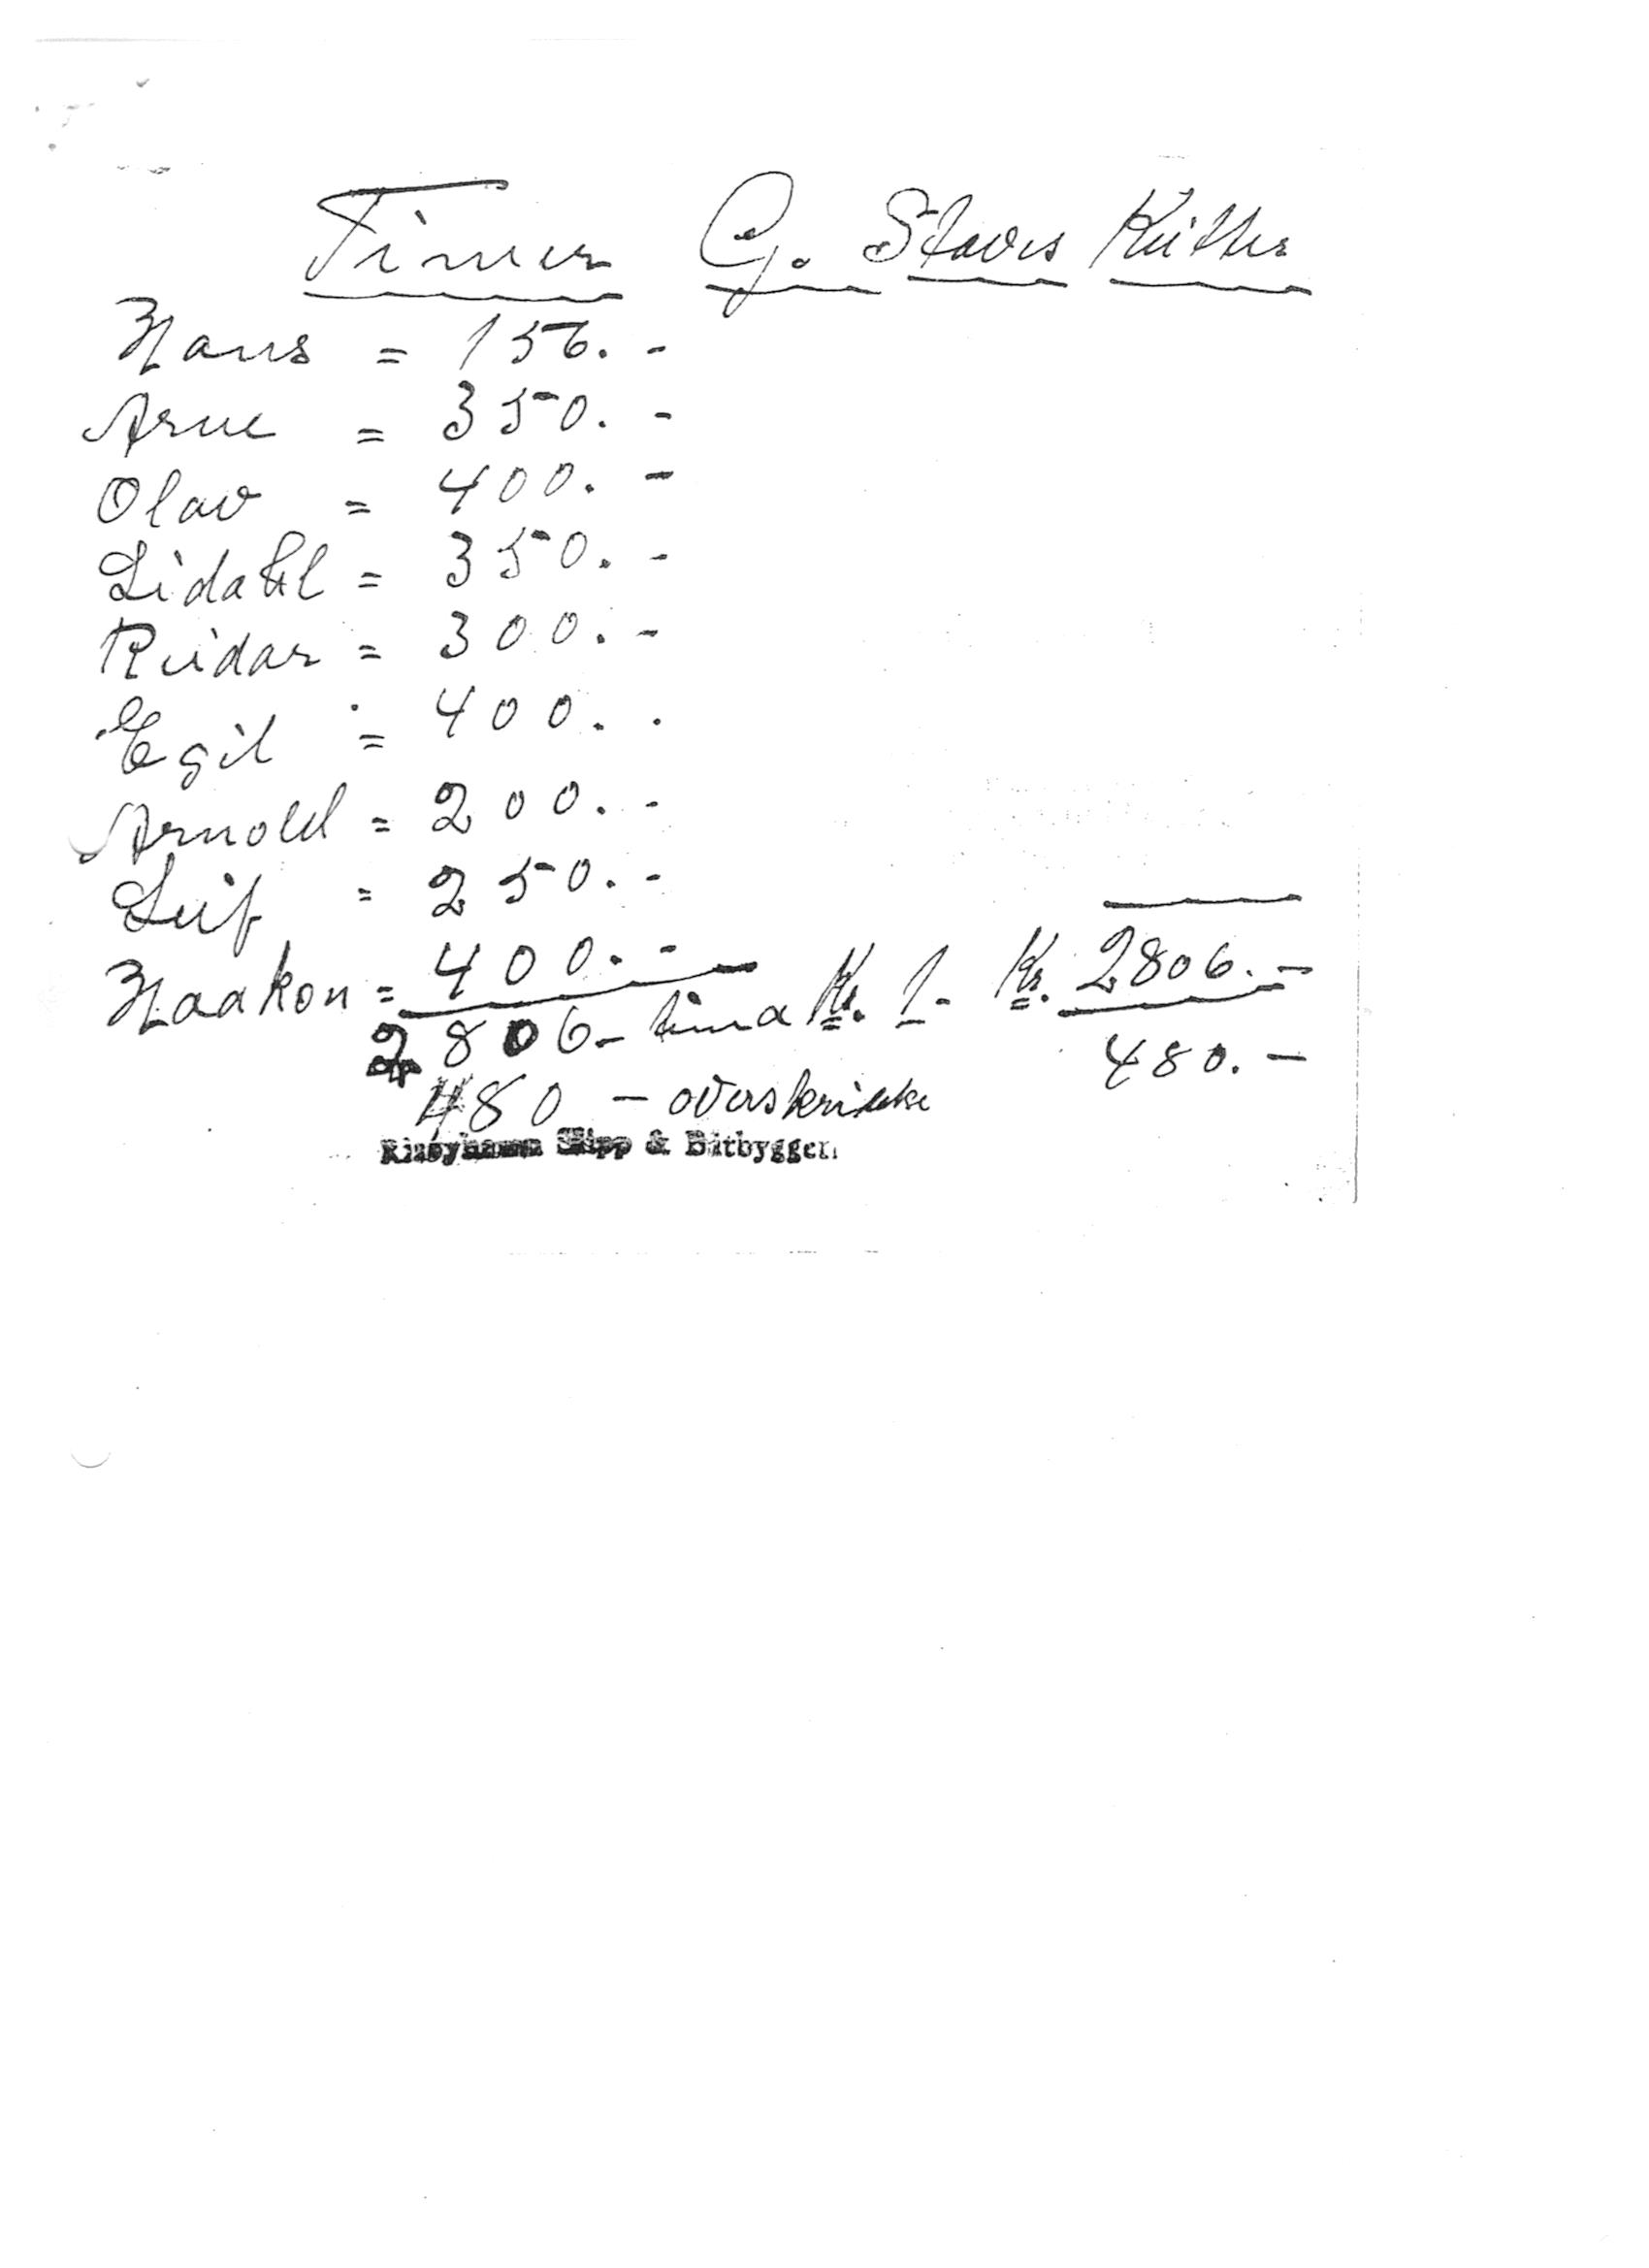 Timer G. Staves Kutter
Hans = 156. -
Arne = 350. -
Olav = 400. -
Lidahl = 350. -
Reidar = 300. -
Egil = 400. -
Arnold = 200. -
Leif = 250. -
Haakon = 400. -
2806 - tim a Kr. 1. - Kr. 2806. -
480 - 480. -
& Båtbyggeri